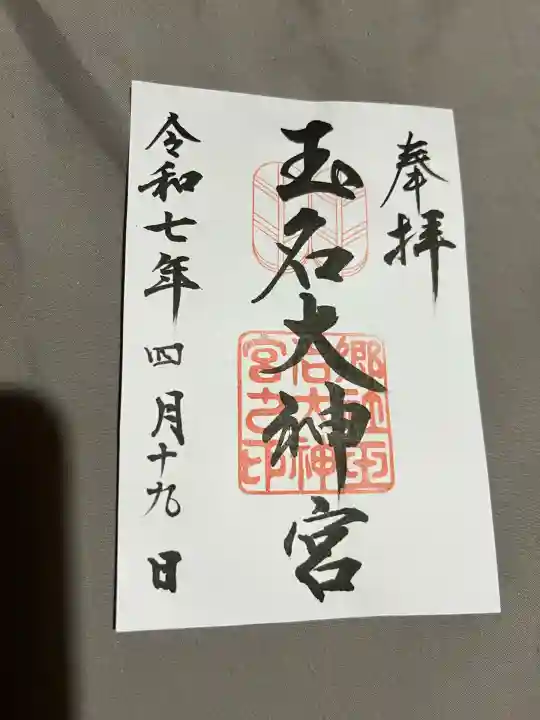 奉拝
玉名大神宮
郷社玉
名大神
宮之印
令和七年四月十九日